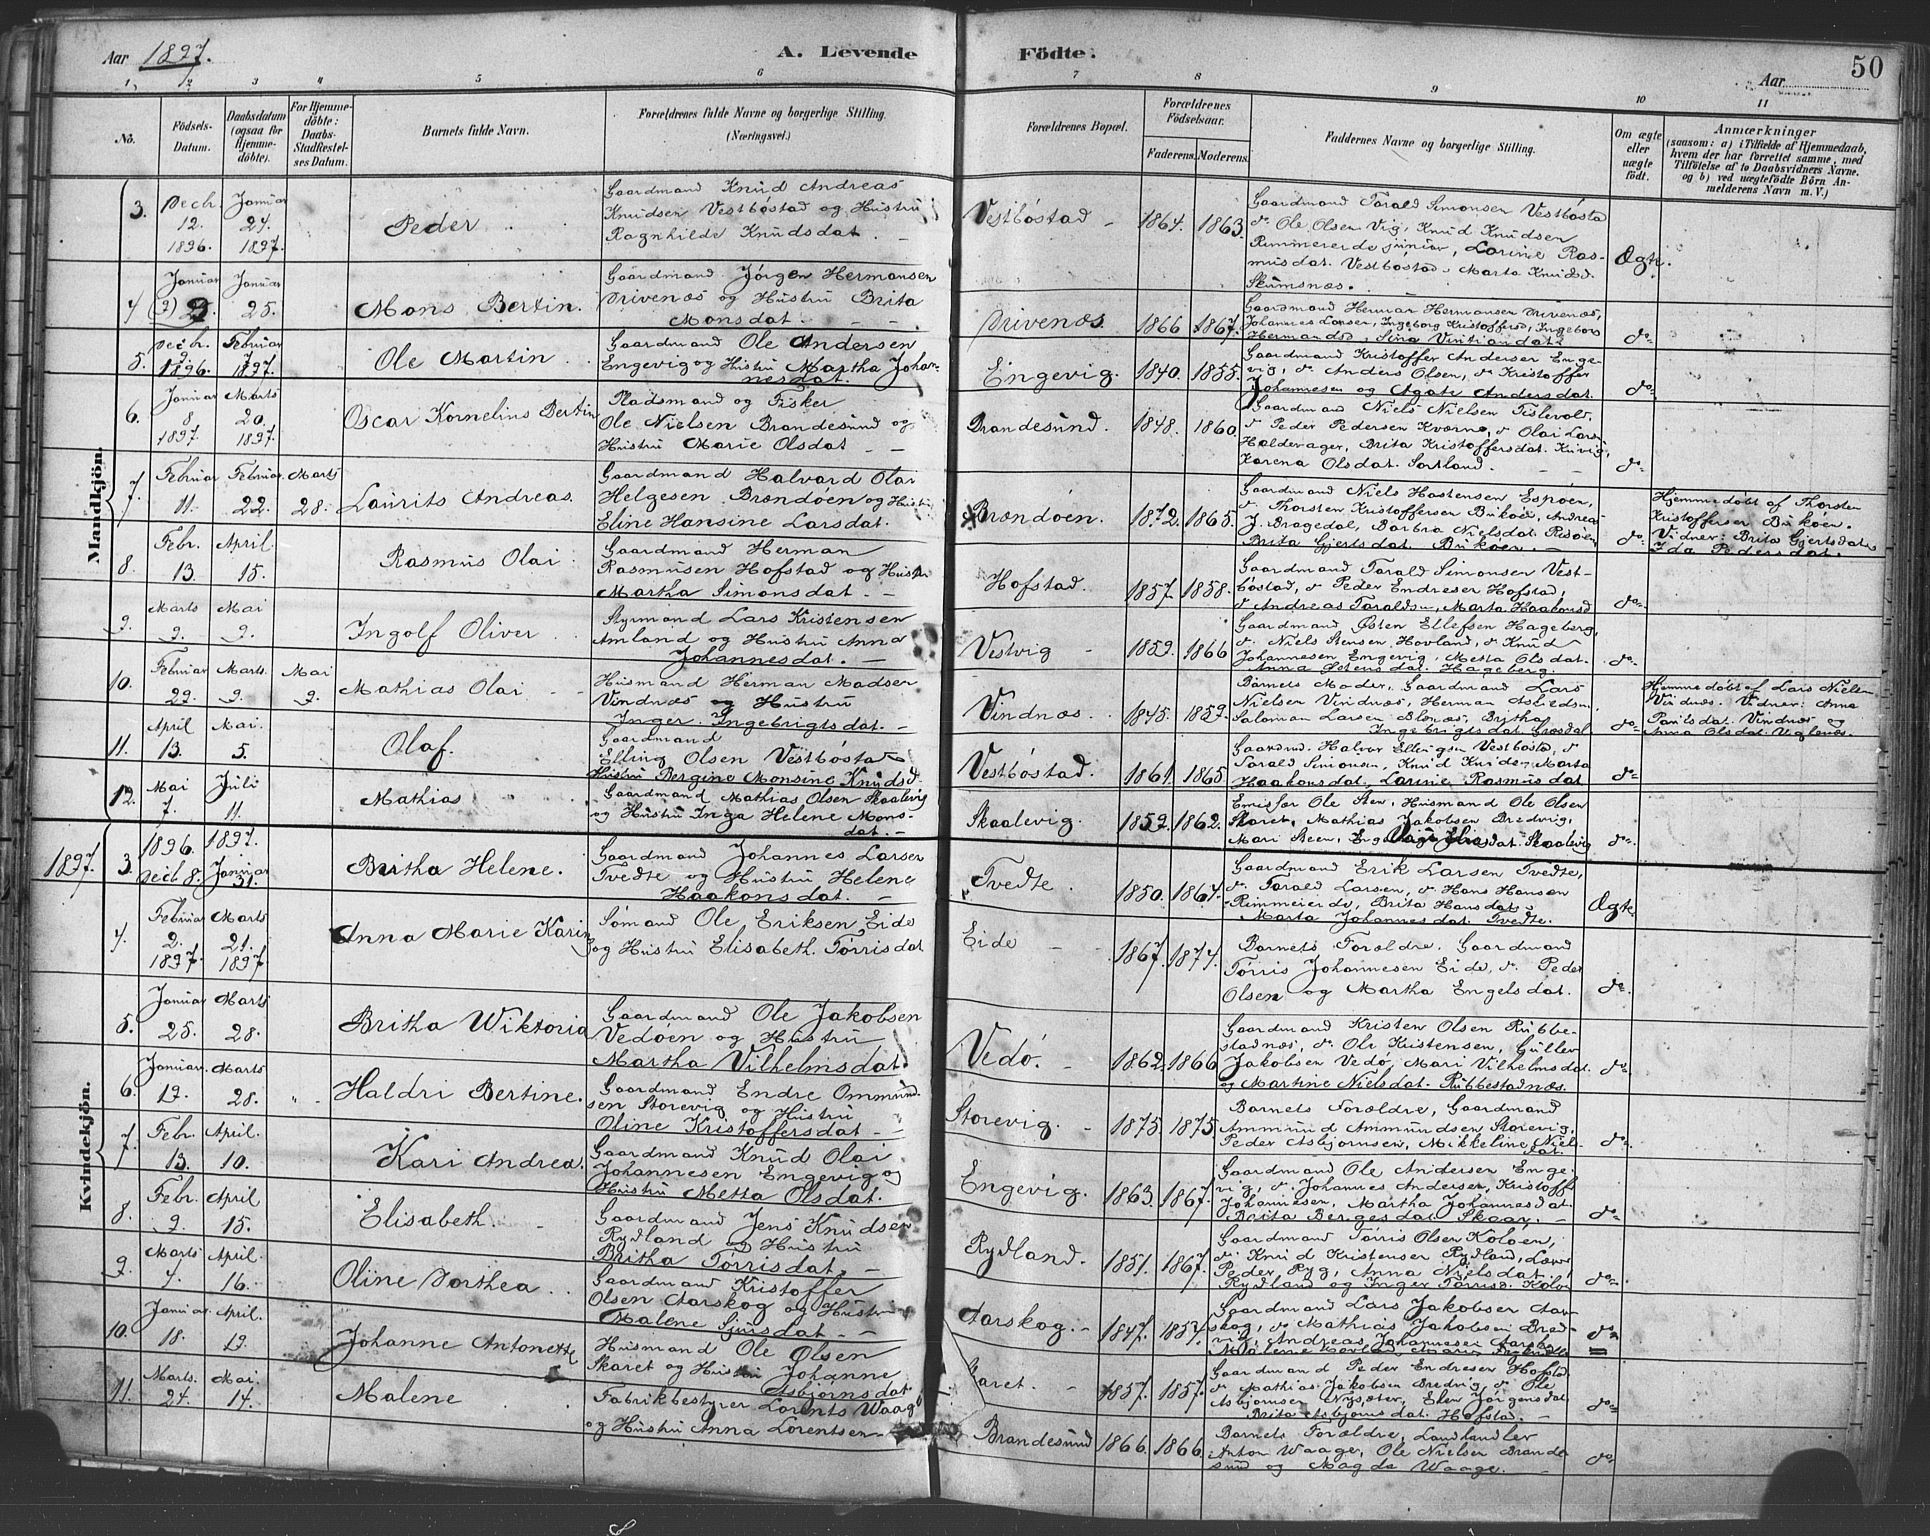 Aar 1897.
A. Levende Födte.
Aar 50
1, 2 3 4 5 6 7 8 9 10 11
No.
Födsels-Datum.
Daabsdatum (ogsaa for Hjemme-döbte).
For Hjemme-döbte: Daabs-Stadfæstel-ses Datum.
Barnets fulde Navn.
Forældrenes fulde Navne og borgerlige Stilling. (Næringsvei.)
Forældrenes Bopæl.
Forældrenes Födselsaar.
Faderens. Moderens.
Faddernes Navne og borgerlige Stilling.
Om ægte eller uægte födt.
Anmærkninger
(saasom: a) i Tilfælde af Hjemmedaab, hvem der har forrettet samme, med Tilföielse af to Daabsvidners Navne. og b) ved uægtefödte Börn An-melderens Navn m. V.)
Mandkjön.
3. Decb. 12. 1896. Januar 24. 1897. Peder
Gaardmand Knud Andreas
Knudsen Vestbøstad og Hustru
Ragnhilde Knudsdat.
Vestbøstad 1864. 1863.
Gaardmand Tarald Simonsen Vestbøsta
do Ole Olsen Vig, Knud Knudsen
Rimmereide junior, Larine Ras-
musdat. Vestbøstad. Marta Knudsd.
Skumsnæs.
Ægte.
4 Januar Januar 25. Mons Bertin.
Gaardmand Jørgen Hermansen
Drivenæs og Hustru Brita
Monsdat.
Drivenæs. 1866 1867.
Gaardmand Herman Hermansen Drivenæs,
Johannes Larsen, Ingeborg Kristoffersd, Ingeborg
Hermansd,
do
5. Decb. 1896. Februar 7 1897. Ole Martin
Gaardmand Ole Andersen
Engevig og Hustru Martha Johan-
nesdat.
Engevig. 1840. 1855.
Gaardmand Kristoffer Andersen Enge-
vig, do Anders Olsen, do Kristoffer
Johannesen og Agate Andersdat.
do
6. Januar 8 1897. Marts 20. 1897. Oscar Kornelius Bertin
Pladsmand og Fisker
Ole Nielsen Brandesund og
Hustru Marie Olsdat
Brandesund. 1848. 1860.
Gaardmand Niels Nielsen Tislevold,
do Peder Pedersen Kværne, do Olai Lars.
Haldorager, Brita Kristoffersdat.
Karena Olsdat. Sortland.
do
7. Februar 11. Februar 22. Marts 28. Laurits Andreas.
Gaardmand Halvard Olai
Helgesen Brændøen og Hustru
Eline Hansine Larsdat.
Brændøen. 1872. 1865.
Gaardmand Niels Hostensen Espøen,
do Thorsten Kristoffersen Bukøen, Andreas
J. Bragedal, Barbra Nielsdat. Risøen
Brita Gjertsdat. Bukøen.
do
Hjemmedøbt af Thorsten
Kristoffersen Bukøen.
Vidner: Brita Gjertsdat.
Ida Pedersdat.
8. Febr. 13. April. 15. Rasmus Olai
Gaardmand Herman
Rasmusen Hofstad og Hustru
Martha Simonsdat.
Hofstad. 1857. 1858.
Gaardmand Tarald Simonsen Vest-
bøstad, do Peder Endresen Hofstad,
do Andreas Taraldsen, Marta Haakonsd
do
9. Marts 9. Mai 9. Ingolf Oliver
Styrmand Lars Kristensen
Amland og Hustru Anna
Johannesdat.
Vestvig 1859. 1866
Gaardmand Østen Ellefsen Hageberg,
do Niels Stensen Hovland, do Knud
Johannesen Engevig, Metta Olsdat.
Anna Østensdat. Hageberg.
do
10. Februar 29. Marts. 9. Mai 9. Mathias Olai
Husmand Herman Madsen
Vindnæs og Hustru
Inger Ingebrigtsdat.
Vindnæs. 1845. 1859.
Barnets Moder, Gaardmand Lars
Nielsen Vindnæs, Herman
Saloman Larsen Blænæs, Britha
Ingebrigtsdat.
do
Hjemmedøbt af Lars Nielsen
Vindnæs. Vidner: Anna
Paulsdat. Vindnæs og
Anna Olsdat. Viglenæs.
11. April 13. Mai. 5. Olaf.
Gaardmand
Elling Olsen Vestbøstad
Hustru Bergine Monsine Knudsd.
Vestbøstad. 1861. 1865.
Gaardmd. Halvor Ellingsen Vestbøstad, do
Tarald Simonsen, Knud Knudsen Marta
Haakonsdat, Larine Rasmusdat
do
12. Mai 7. Juli 11. Mathias
Gaardmand Mathias Olsen Skaalevig
og Hustru Inga Helene Mons-
dat.
Skaalevig. 1859. 1862.
Emisfær Ole Steen, Husmand Ole Olsen
Skaret, Mathias Jakobsen Bredvig,
Mari Steen, Skaalevig
do
Kvindekjön.
1897. 3. 1896. Decb 8. 1897. Januar 31. Britha Helene.
Gaardmand Johannes Larsen
Tvedte og Hustru Helene
Haakonsdat.
Tvedte. 1850. 1861.
Gaardmand Erik Larsen Tvedte,
do Tarald Larsen, do Hans Hansen
Rimmereide, Brita Hansdat.
Marta Johannesdat Tvedte.
Ægte.
4. Februar 2. 1897. Marts 21. 1897. Anna Marie Karin
Sømand Ole Eriksen Eide
og Hustru Elisabeth Tørrisdat
Eide 1867. 1874.
Barnets Forældre. Gaardmand
Tørris Johannesen Eide, do Peder
Olsen og Martha Engelsdat.
do
5. Januar 25. Marts 28. Britha Wiktoria
Gaardmand Ole Jakobsen
Vedøen og Hustru
Martha Vilhelmsdat.
Vedø. 1862. 1866
Gaardmand Kristen Olsen Rubbe-
stadnæs, do Ole Kristensen, Guller
Jakobsen Vedø, Mari Vilhelmsdat
og Martine Nielsdat. Rubbestadnæs.
do
6. Januar. 19. Marts 28. Haldri Bertine.
Gaardmand Endre Ommund
sen Storevig og Hustru
Oline Kristoffersdat
Storevig. 1875. 1875.
Barnets Forældre, Gaardmand
Ammund Ammundsen Storevig,
Peder Asbjørnsen, Mikkeline Niel-
dat.
do
7. Febr. 13. April. 10. Kari Andrea.
Gaardmand Knud Olai
Johannesen Engevig og
Hustru Metta Olsdat.
Engevig. 1863. 1867.
Gaardmand Ole Andersen Enge-
vig, do Johannes Andersen, Kristoff.
Johannesen, Martha Johannesdat
Brita Bergesdat Skaar.
do
8. Febr. 9. April 15. Elisabeth.
Gaardmand Jens Knudsen
Rydland og Hustru
Britha Tørrisdat.
Rydland. 1851. 1867.
Gaardmand Tørris Olsen Koløen,
do Knud Kristensen Rydland, Lars
Peder Ryg, Anna Nielsdat.
Rydland og Inger Tørrisd. Koløen
do
9. Marts 4. April. 16. Oline Dorthea
Gaardmand Kristoffer
Olsen Aarskog og Hustru
Malene Sjursdat
Aarskog. 1847. 1857.
Gaardmand Lars Jakobsen Aar-
skog, do Mathias Jakobsen Bred-
vig, Andreas Johannesen Aarskog
do
10. Januar. 18. April. 19. Johanne Antonette
Husmand Ole Olsen
Skaret og Hustru Johanne
Asbjørnsdat
Skaret. 1857. 1857.
Gaardmand Peder Endresen Hofstad
do Mathias Jakobsen Bredvig, do Ole
Asbjørnsen Nysæter, Elen Jørgensdat
Brita Asbjørnsdat. Hofstad.
do
11. Marts. 24. Mai 14. Malene
Fabrikbestyrer Lorents Waage
og Hustru Anna Lorentsen
Brandesund 1866. 1866.
Barnets Forældre, Landhandler
Anton Waage, Ole Nielsen Brande-
sund og Magda Waage.
do